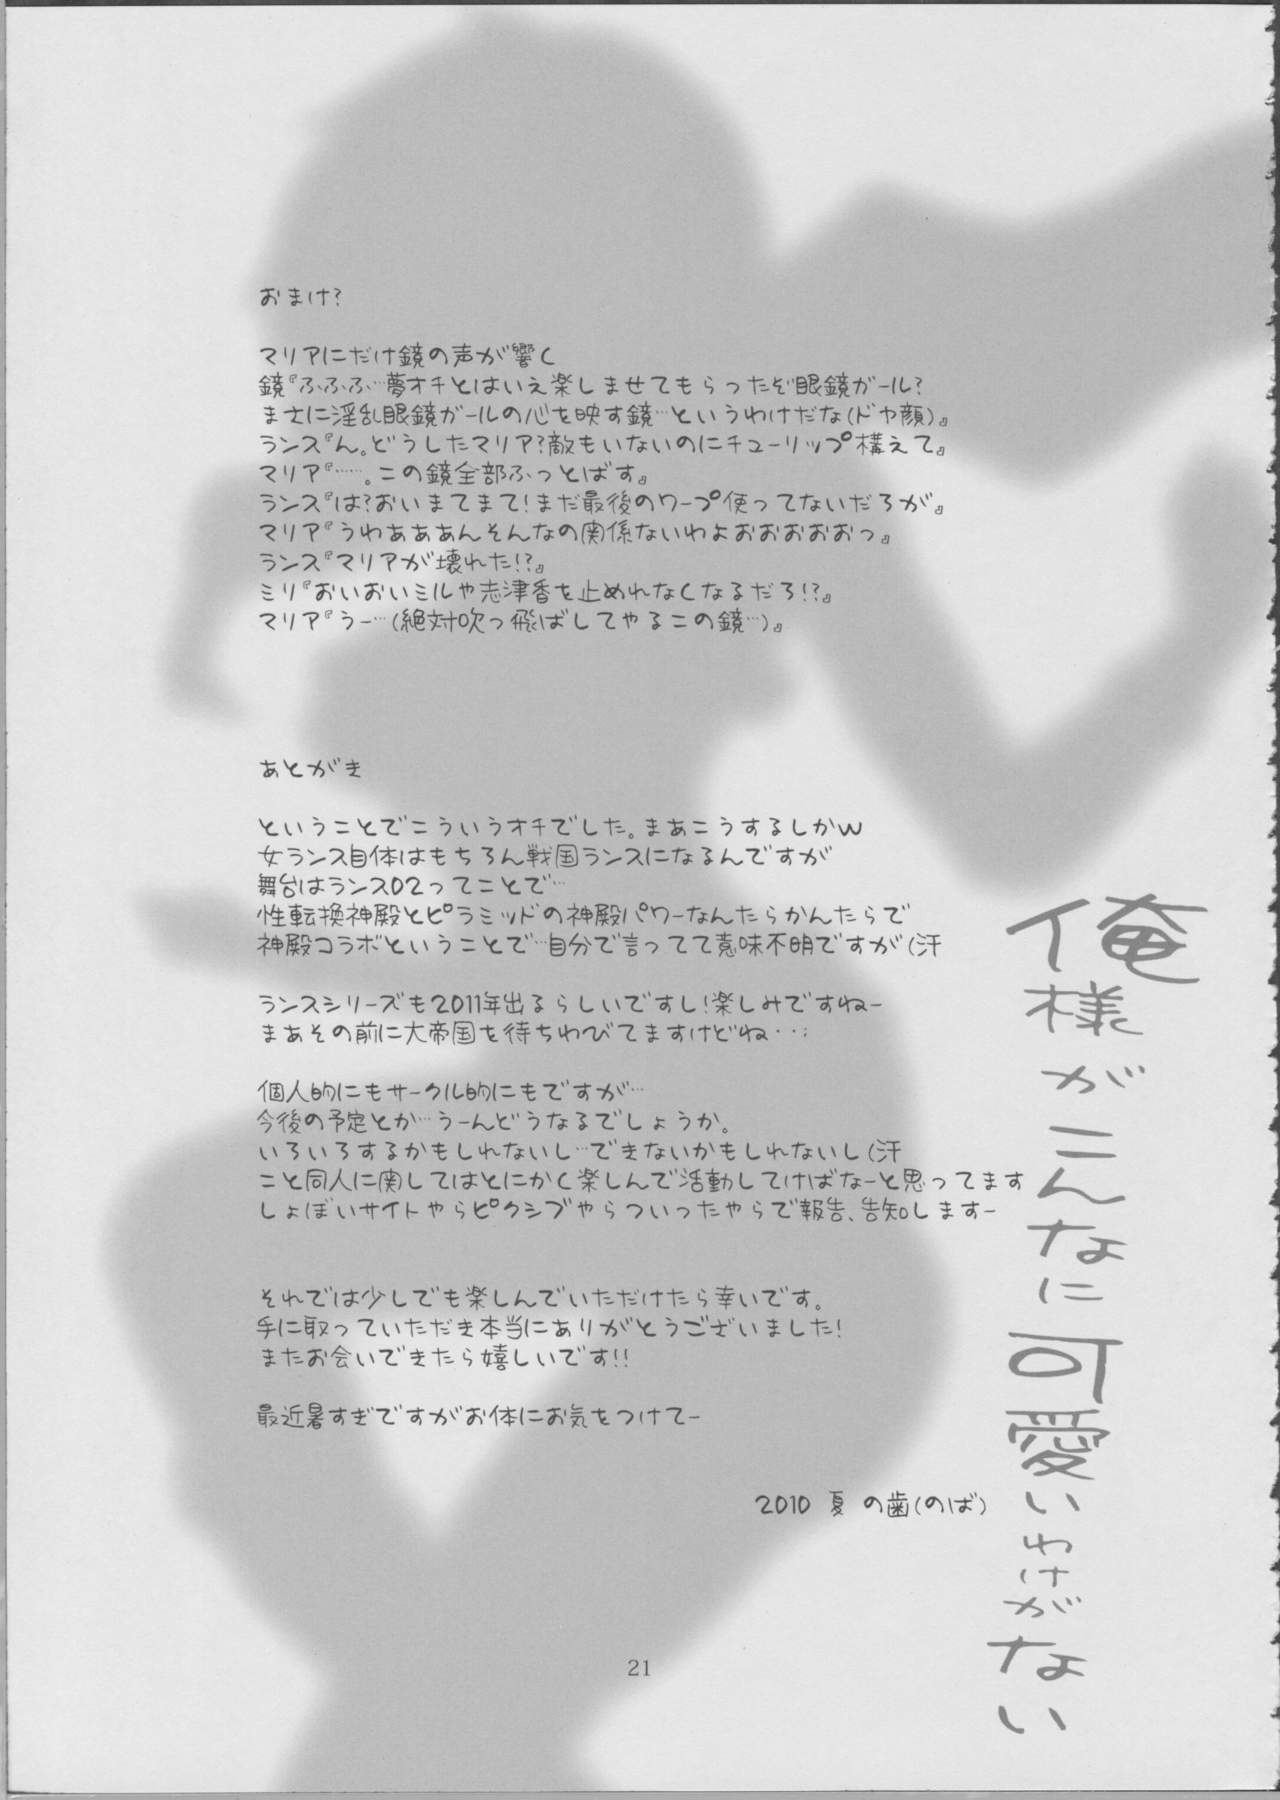 おまけ?
マリアにだけ鏡の声が響く
鏡『ふふふ…夢オチとはいえ楽しませてもらったぞ眼鏡ガール?
まさに淫乱眼鏡ガールの心を映す鏡…というわけだな(ドヤ顔)』
ランス『ん。どうしたマリア?敵もいないのにチューリップ構えて』
マリア『……。この鏡全部ふっとばす』
ランス『は?おいまてまて!まだ最後のワープ使ってないだろが』
マリア『うわあああんそんなの関係ないわよおおおおおっ』
ランス『マリアが壊れた!?』
ミリ『おいおいミルや志津香を止めれなくなるだろ!?』
マリア『うー…(絶対吹っ飛ばしてやるこの鏡…)』
あとがき
ということでこういうオチでした。まあこうするしかw
女ランス自体はもちろん戦国ランスになるんですが
舞台はランス02ってことで…
性転換神殿とピラミッドの神殿パワーなんたらかんたらで
神殿コラボということで…自分で言ってて意味不明ですが(汗
ランスシリーズも2011年出るらしいですし!楽しみですねー
まあその前に大帝国を待ちわびてますけどね・・;
個人的にもサークル的にもですが…
今後の予定とか…うーんどうなるでしょうか。
いろいろするかもしれないし…できないかもしれないし(汗
こと同人に関してはとにかく楽しんで活動してけばなーと思ってます
しょぼいサイトやらピクシブやらついったやらで報告、告知しますー
それでは少しでも楽しんでいただけたら幸いです。
手に取っていただき本当にありがとうございました!
またお会いできたら嬉しいです!!
最近暑すぎですがお体にお気をつけてー
2010 夏 の歯(のば)
俺様がこんなに可愛いわけがない
21